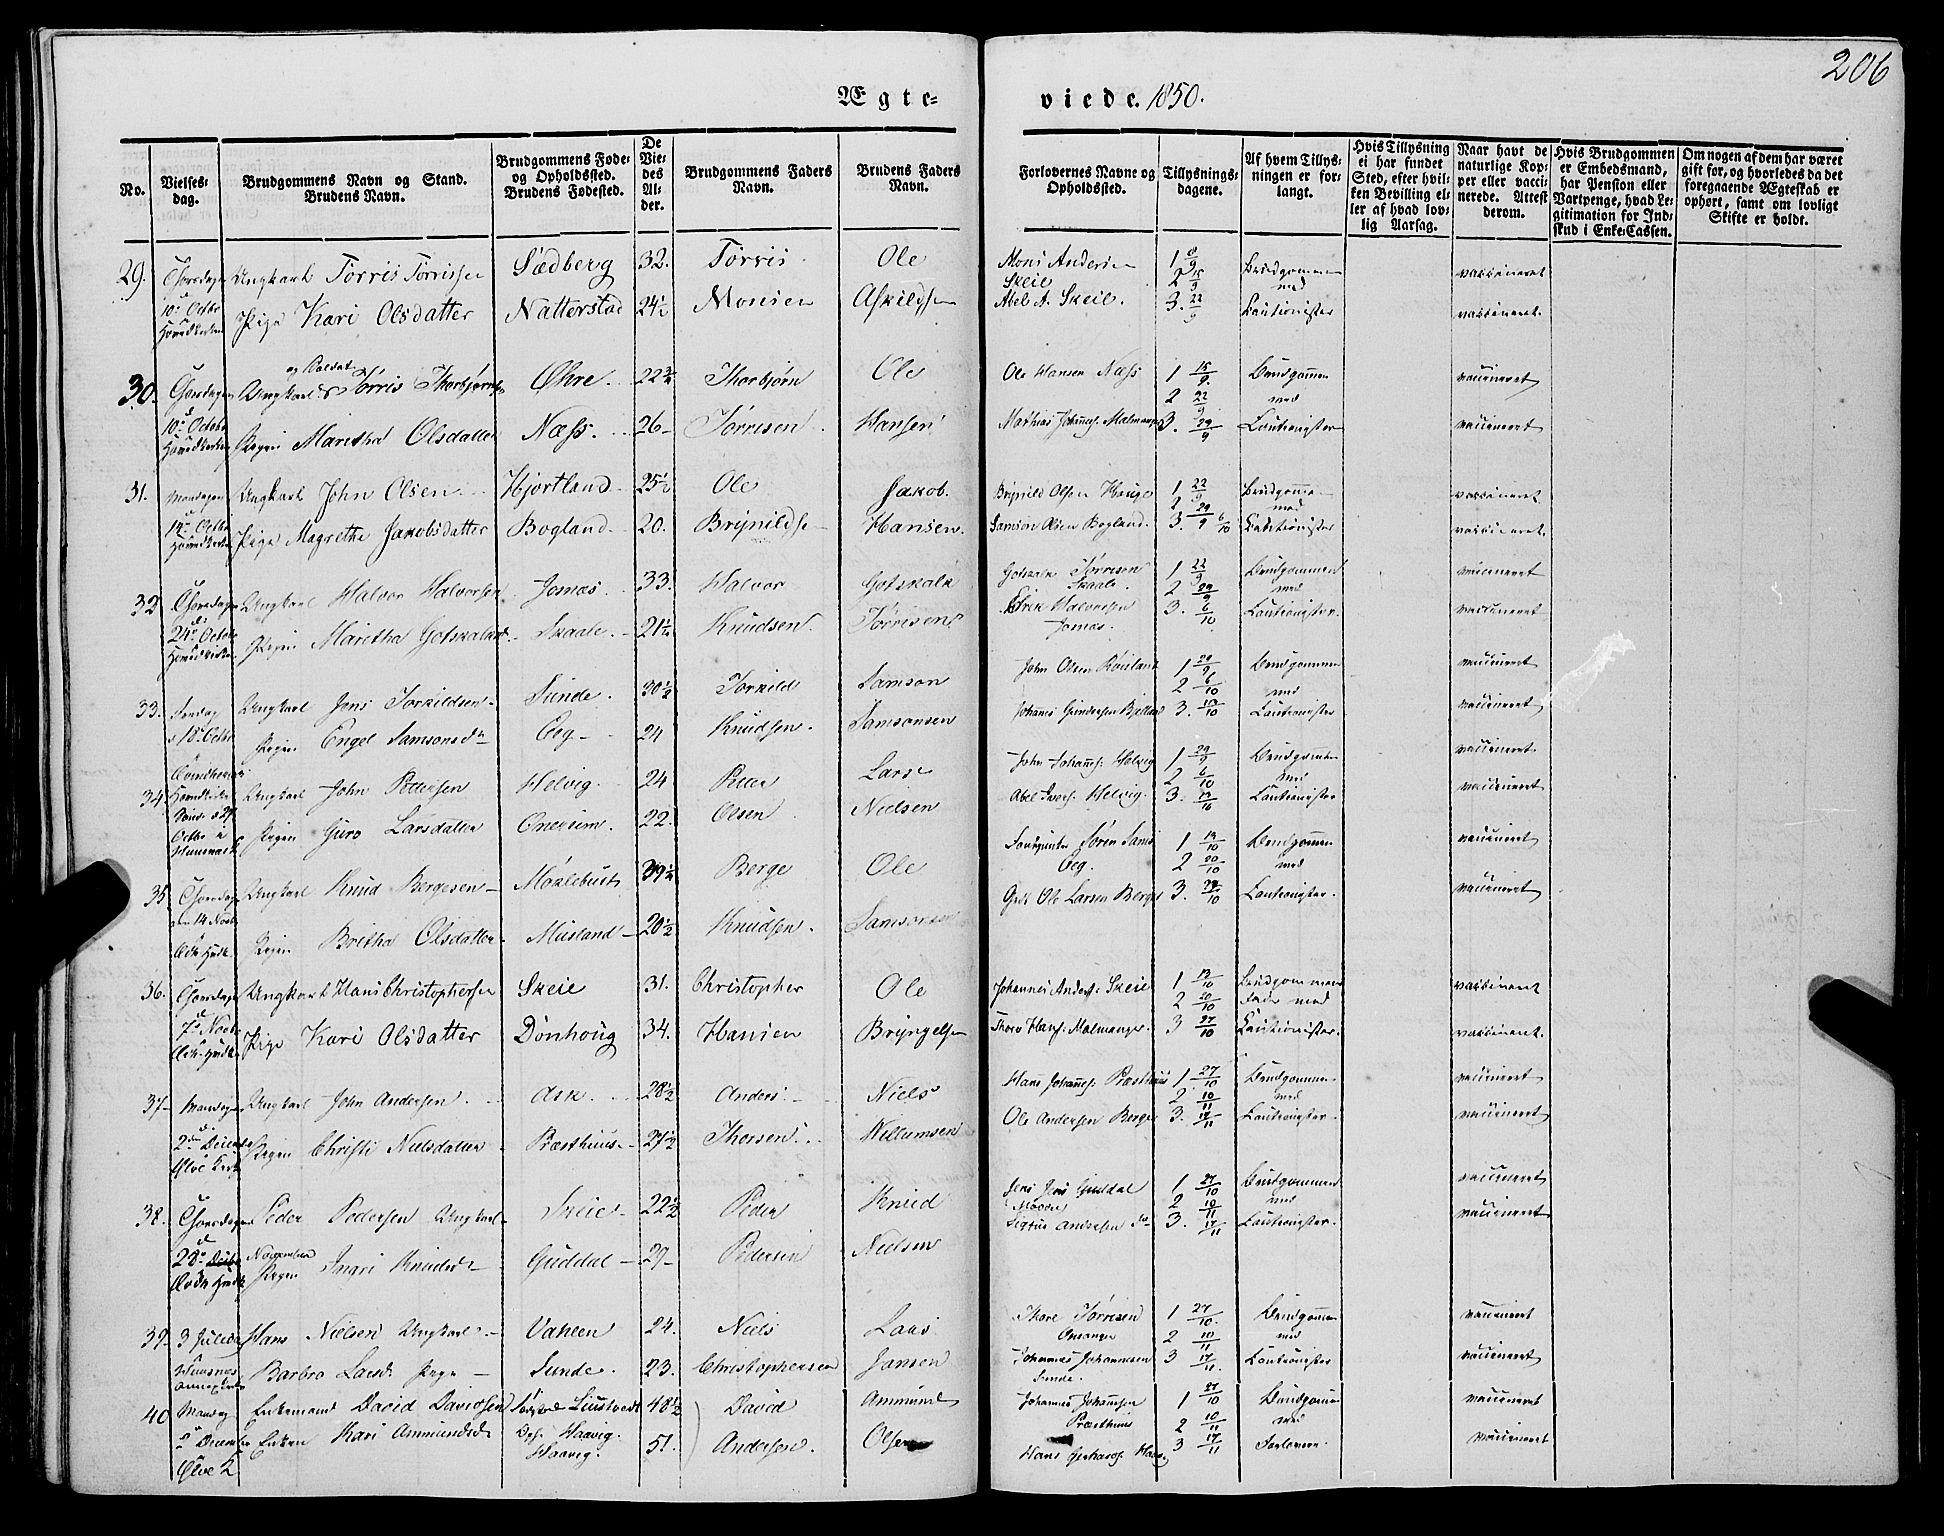 206
Ægte-
viede. 1850.
No.
Vielses-dag.
Brudgommens Navn og Stand. Brudens Navn.
Brudgommens Føde- og Opholdssted. Brudens Fødested.
De Vie-des Al-der.
Brudgommens Faders Navn.
Brudens Faders Navn.
Forlovernes Navne og Opholdssted.
Tillysnings-dagene.
Af hvem Tillys-ningen er for-langt.
Hvis Tillysning ei har fundet Sted, efter hvil-ken Bevilling el-ler af hvad lov-lig Aarsag.
Naar havt de naturlige Kop-per eller vacci-nerede. Attest derom.
Hvis Brudgommen er Embedsmand, har Pension eller Vartpenge, hvad Le-gitimation for Ind-skud i Enke-Cassen.
Om nogen af dem har været gift før, og hvorledes da det foregaaende Ægteskab er ophørt, samt om lovligt Skifte er holdt.
29. Thorsdagen Ungkarl Torris Torrissen Sædberg 32. Torris Ole Mons Andersen Skeie 1 8/9 Brudgommen vaccineret
d 10. Octbr Hovedkirken Pige Kari Olsdatter Natterstad 24½ Monsen Askildsen Abel A. Skeie. 2 15/9 3. 22/9 med Cautionister vaccineret.
30. Thorsdagen Ungkarl og Soldat Tørris Thorbjørns Øhre. 22¾ Thorbjørn Ole Ole Hansen Næss 1 15/9. Brudgommen vaccineret
d 10. Octobr Hovedkirken Pigen Maritha Olsdatter Næss. 26 Tørrisen Hansen Mathias Johannes: Malmanger 2 22/9 3. 29/9 med Cautionister vaccineret
31. Mandagen Ungkarl John Olsen Hjortland 25½ Ole Jakob. Brynild Olsen Hauge 1 22/9 Brudgommen vaccineret
d 14. Octbr Hovedkirken Pige Magrethe Jakobsdatter Bogland 20. Brynildsen Hansen. Samson Olsen Bogland. 2 29/9 3. 6/10 med Cautionister vaccineret.
32 Thorsdagen Ungkarl Halvor Halvorsen Jomas 33. Halvor Gotskalk Gotskalk Tørrisen Skaale. 1 22/9 Brudgommen vaccineret
d. 24. Octbr Hovedkirken Pigen Maretha Gotskalksd. Skaale. 21½ Knudsen Tørrisen Halvorsen Jomas. 2 29/9 3. 6/10 med Cautionister. vaccineret
33. Ungkarl Jens Torkildsen Sunde. 30½ Torkild Samson John Olsen 1 29/9 Brudgommen vaccineret
Octbr Pigen Engel Samsonsd Eeg 24 Knudsen. Samsonsen Johanes Gundersen 2 6/10 3. 13/10 med Cautionister vaccineret
34. Hovedkirke Ungkarl John Pedersen Helvig 24 Peder Lars John Johannes: Helvig 1 29/9 Brudgommen vaccineret
Octbr i Pigen Guro Larsdatter 22. Olsen Nielsen Abel Helvig. 2 6/10 3. 13/10 med Cautionister vaccineret
35. Thorsdagen Ungkarl Knud Bergesen 39½ Berge Ole Søren Eeg. 1 13/10 Brudgommen vaccineret
den 14 Novbr Pigen Bretha Olsdatter. Musland 20½ Knudsen. Samsonsen Ole Larsen Berge 2 20/10 3. 27/10 med Cautionister. vaccineret
36. Thorsdagen Ungkarl Hans Christophersen Skeie 31. Christopher Ole Johannes Anders: Skeie 1 13/10 Brudgommens vaccineret
d 7. Novbr Pige Kari Olsdatter Dønhoug 34. Hansen Bryngelsen Thore Hans: Malmanger. 2 20/10 3 27/10 Fader med Cautionister. vaccineret.
37. Mandag Ungkarl John Andersen. Ask 28½ Anders Niels Hans Johannes: Præsthuus 1 27/10 Brudgommen vaccineret
d. 2den Decembr Ølve Kirk Pigen Christi Nielsdatter Præsthuus 27½ Thorsen Willumsen Ole Andersen Berge 2 10/11 3. 17/11 med Cautionister. vaccineret
38. Thorsdagen Peder Pedersen Ungkarl Skeie 22½ Peder Knud Jens Jens Guddal 1 27/10 Brudgommen vaccineret
d 28. November Pigen Inari Knudsd Guddal 29 Pedersen Nielsen Andersen 2 10/11 3. 17/11 med Cautionister. vaccineret
39. 3 Juledag Hans Nielsen Ungkarl Valeen 24. Niels Lars Thore Tørrisen 1 27/10. Brudgommen vaccineret
Barbro Larsd Pige Sunde. 23. Christophersen Jansen Johannes Johannesen Sunde. 2 10/11 3 17/11. med Cautionister vaccineret
40 Mandag Enkemand David Davidsen 48½ David Ammund Johannes Johannsen Præsthuus 1 27/10 Brudgommen vaccineret
Decembr Ølve K Enken Kari Ammundsd Haavig. Haavig. 51. Andersen. Olsen Hans 2 10/11 3 17/11 med Forlovere. vaccineret